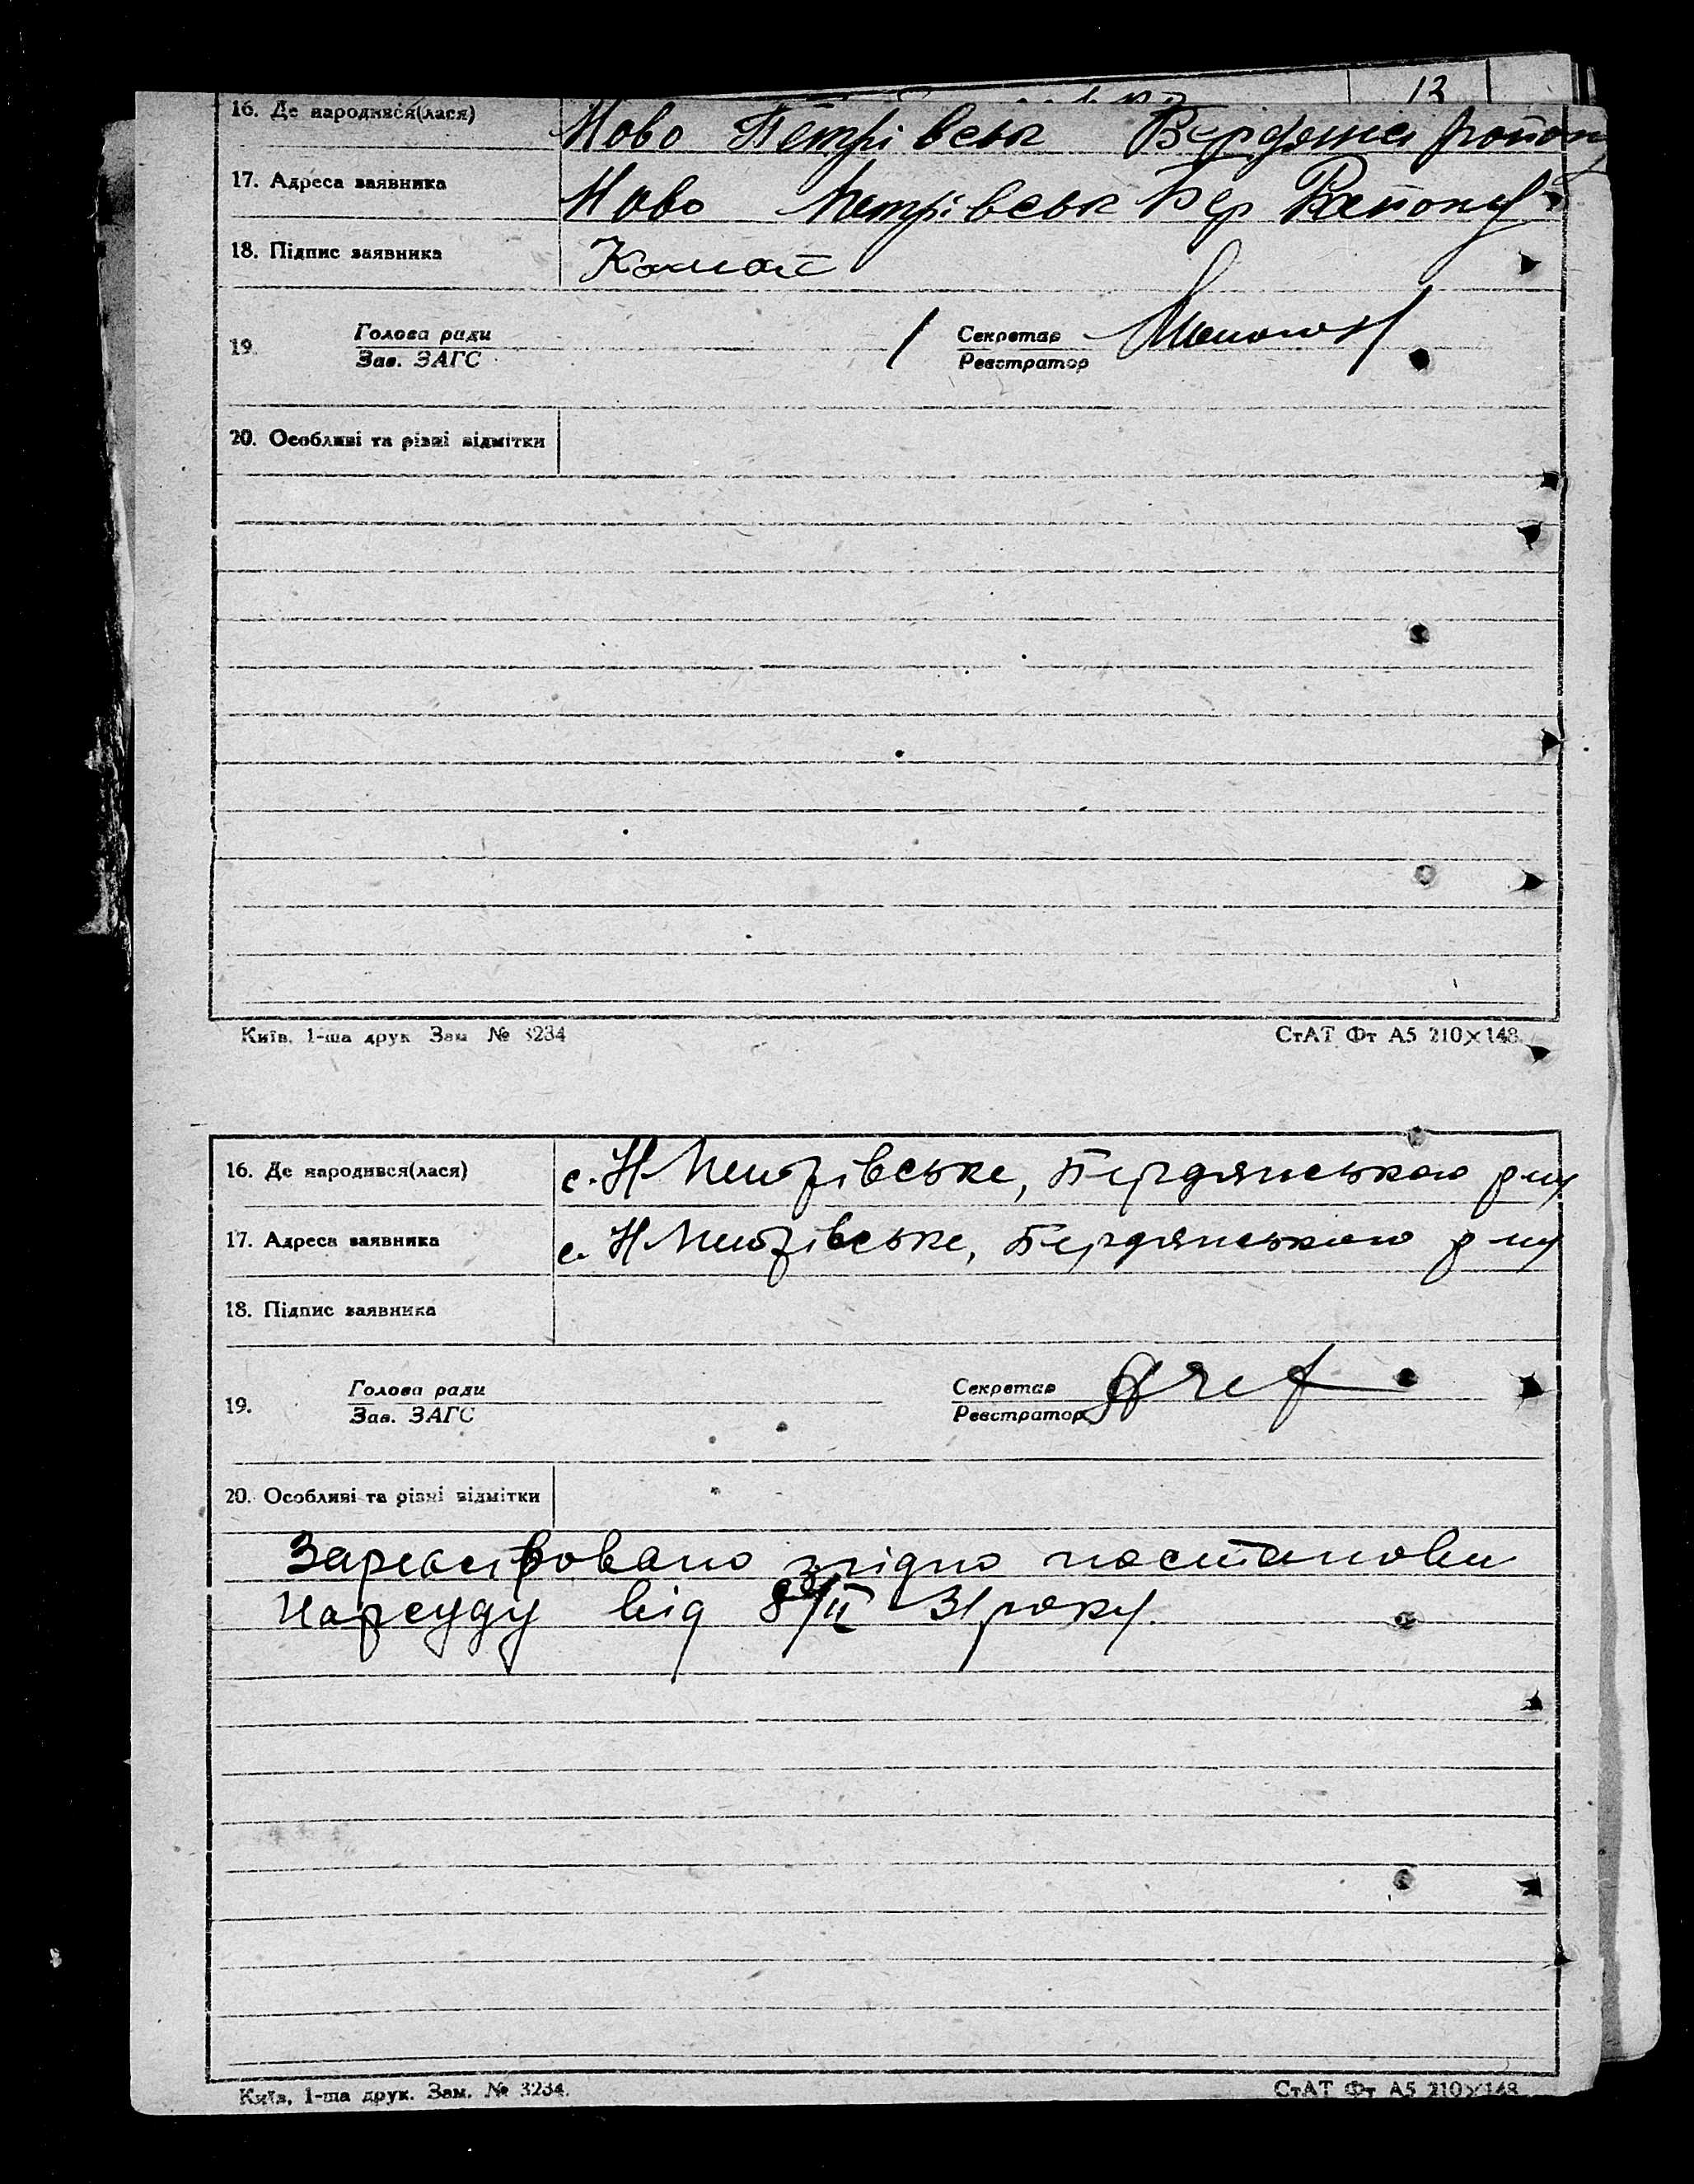 12
16. Де народився(лася) Ново Петрівськ район
17. Адреса заявника Ново Петрівськ Бер Району
18. Підпис заявника
19. Голова ради Секретар
Зав. ЗАГС Реєстратор
20. Особливі та різні відмітки
Київ, 1-ша друк Зам № 3234 СтАТ Фт А5 210×148
16. Де народився(лася) с. Н Петрівське, Бердянського р-ну
17. Адреса заявника с. Н Петрівське, Бердянського р-ну
18. Підпис заявника
19. Голова ради Секретар
Зав. ЗАГС Реєстратор
20. Особливі та різні відмітки
Зареєстровано згідно постанови
Нарсуду від /II 31 року.
Київ, 1-ша друк. Зам. № 3234. СтАТ Фт А5 210×148